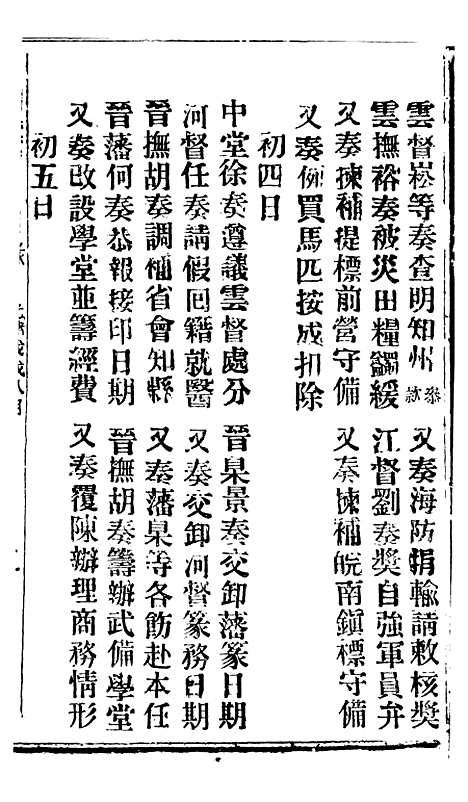 雲督崧等奏查明知州叅款　又奏海防捐輸請敕核獎
雲撫裕奏被災田糧蠲緩　江督劉奏獎自強軍員弁
又奏揀補提標前營守備　又奏揀補皖南鎭標守備
又奏例買馬匹按成扣除
初四日
中堂徐奏遵議雲督處分　晉臬景奏交卸藩篆日期
河督任奏請假回籍就醫　又奏交卸河督篆務日期
晉撫胡奏調補省會知縣　又奏藩臬等各飭赴本任
晉藩何奏恭報接印日期　晉撫胡奏籌辦武備學堂
又奏改設學堂並籌經費　又奏覆陳辦理商務情形
初五日
戌八月